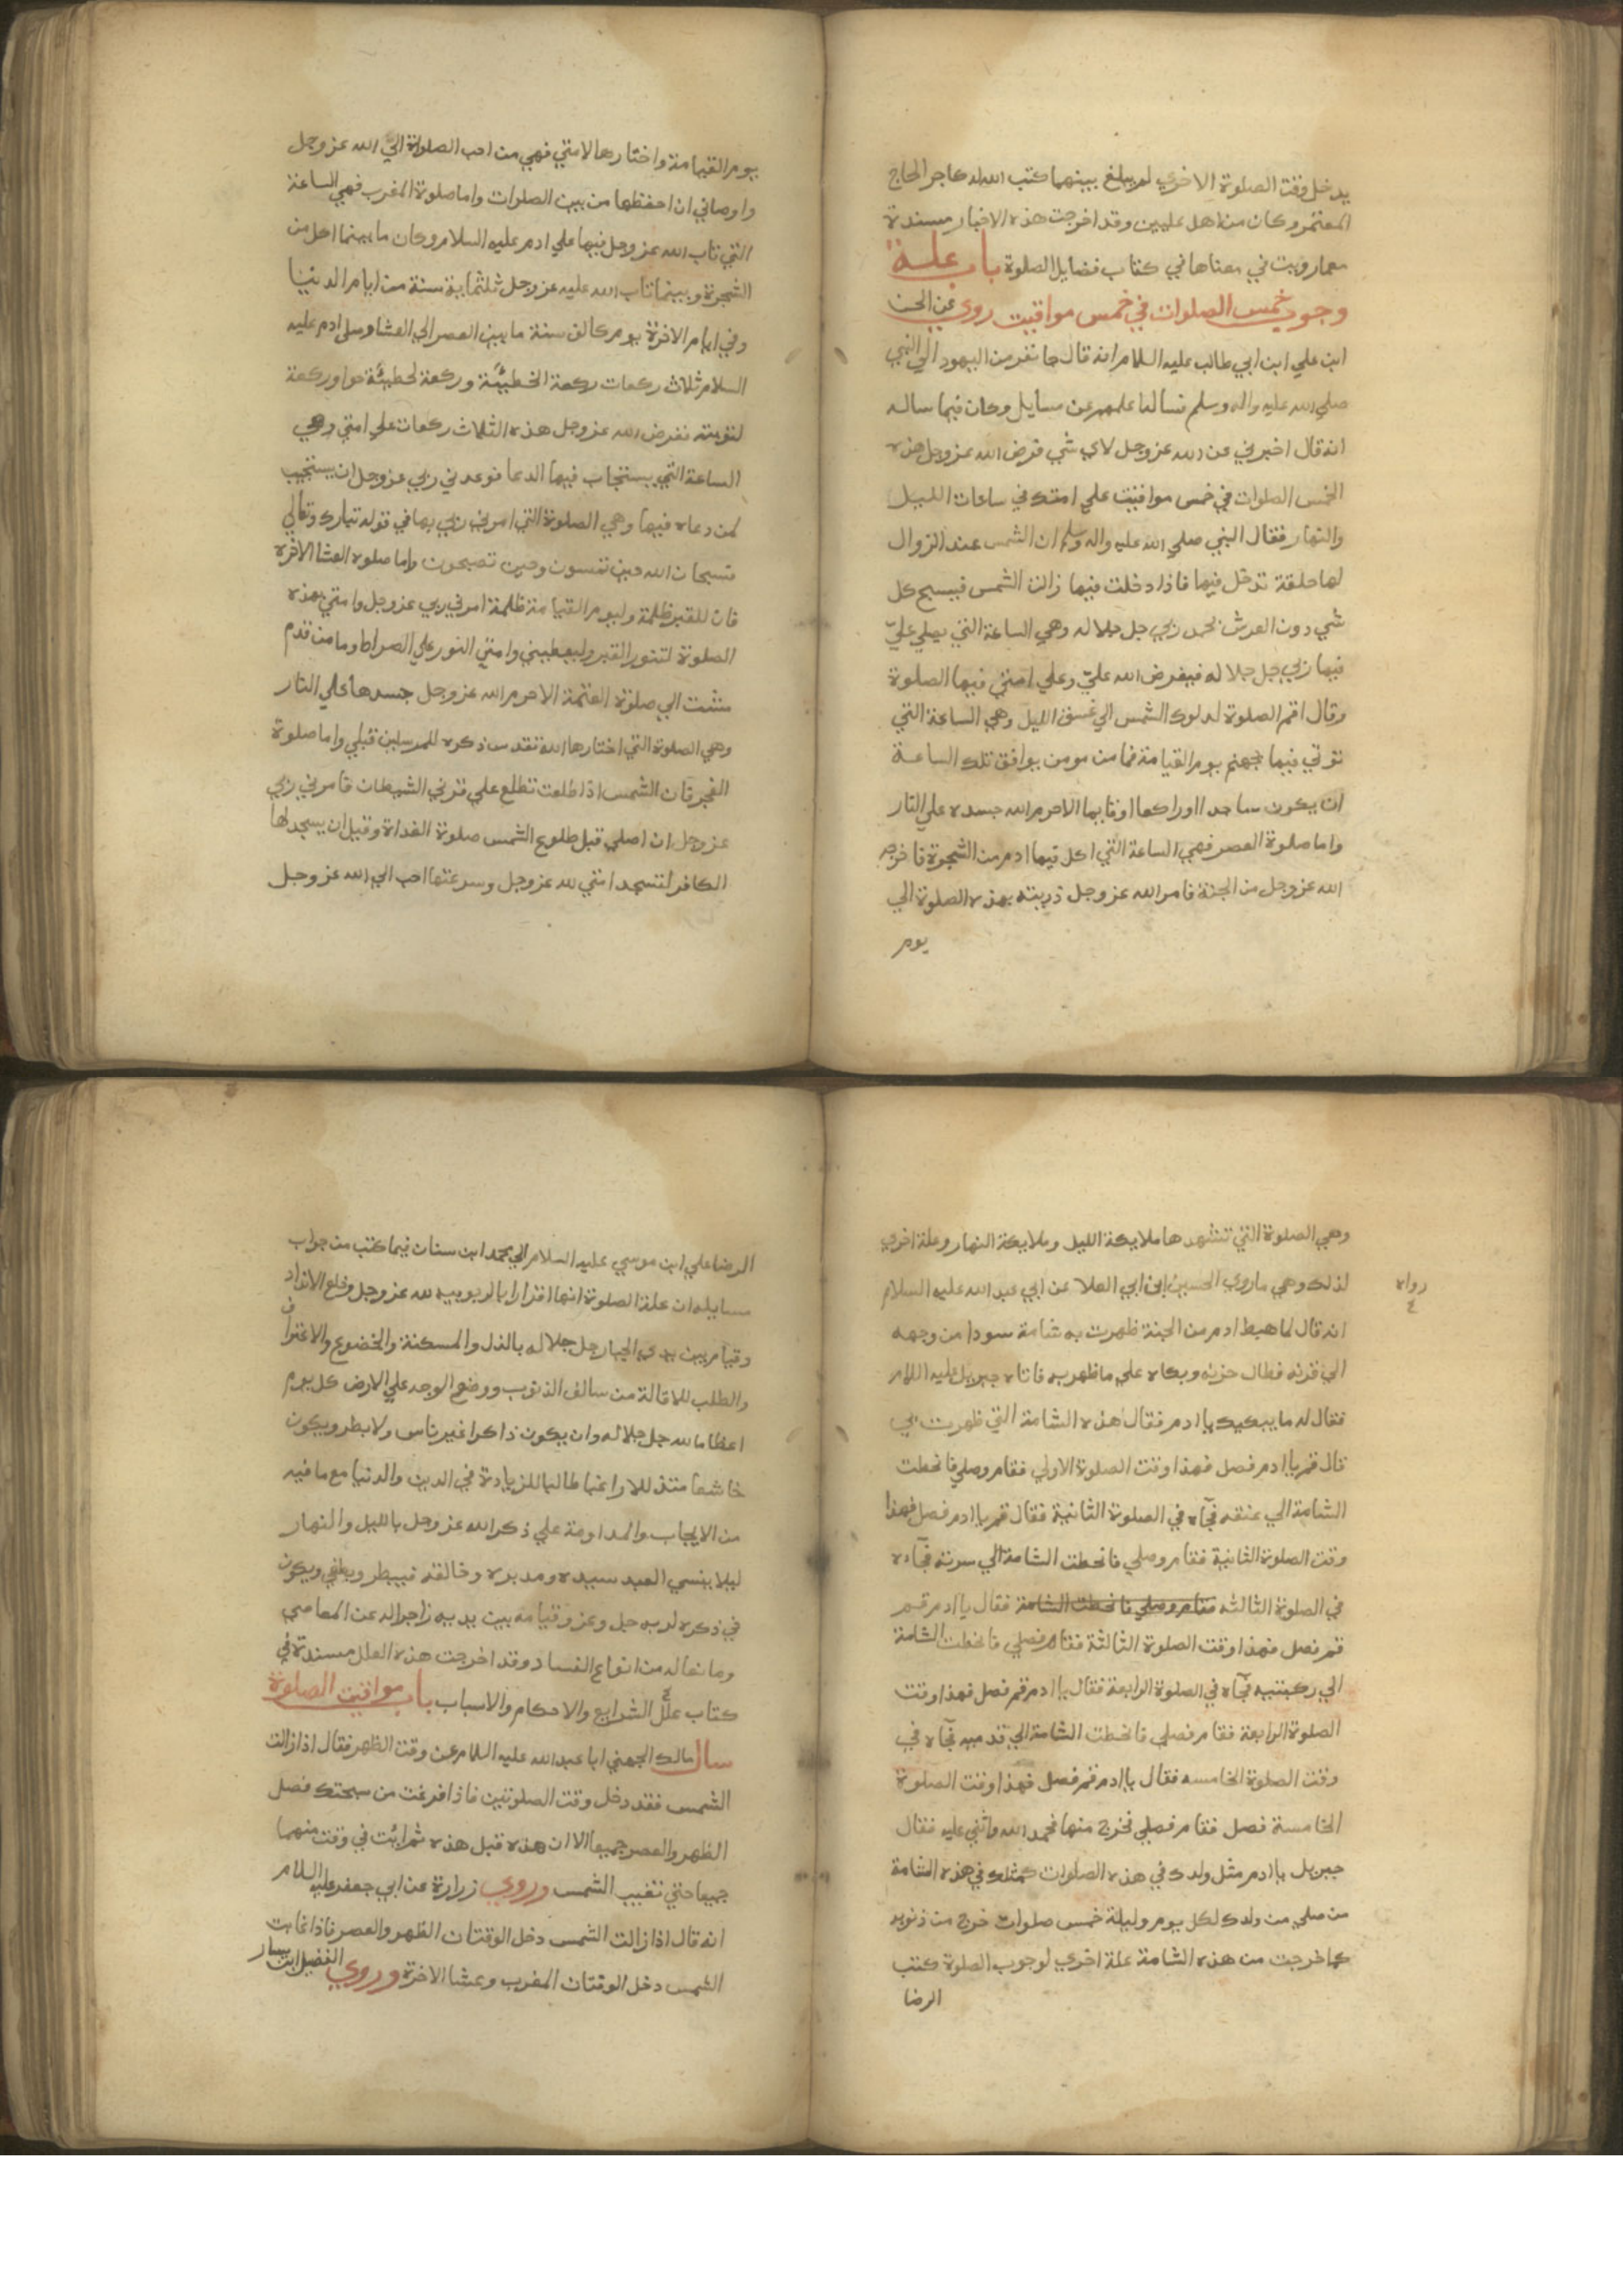 يدخل وقت الصلوة الاخري لم يبلغ بينهما كتب الله له كاجر الحاج
المعتمر وكان من اهل عليين وقد اخرجت هذه الاخبار مسندة
مع ما رويت في معناها في كتاب فضايل الصلوة باب علة
وجوب خمس الصلوات في خمس مواقيت روي عن الحسن
ابن علي ابن ابي طالب عليه السلام انه قال جا نفر من اليهود الي النبي
صلي الله عليه واله وسلم فساله اعلمهم عن مسايل وكان فيما ساله
انه قال اخبرني عن الله عز وجل لاي شي فرض الله عز وجل هذه
الخمس الصلوات في خمس مواقيت علي امتك في ساعات الليل
والنهار فقال النبي صلي الله عليه واله وسلم ان الشمس عند الزوال
لها حلقة تدخل فيها فاذا دخلت فيها زالت الشمس فيسبح كل
شي دون العرش بحمد ربي جل جلاله وهي الساعة التي يصلي عليّ
فيها ربي جل جلاله ففرض الله عليّ وعلي امتي فيها الصلوة
وقال اقم الصلوة لدلوك الشمس الي غسق الليل وهي الساعة التي
توتي فيها بجهنم يوم القيامة فما من مومن يوافق تلك الساعة
ان يكون ساجدا او راكعا او قايما الا حرم الله جسده علي النار
واما صلوة العصر فهي الساعة التي اكل فيها ادم من الشجرة فاخرجه
الله عز وجل من الجنة فامر الله عز وجل ذريته بهذه الصلوة الي
يوم
يوم القيامة واختارها لامتي فهي من احب الصلوة الي الله عز وجل
واوصاني ان احفظها من بين الصلوات واما صلوة المغرب فهي الساعة
التي تاب الله عز وجل فيها علي ادم عليه السلام وكان ما بينما اكل من
الشجرة وبينما تاب الله عليه عز وجل ثلثماية سنة من ايام الدنيا
وفي ايام الاخرة يوم كالف سنة ما بين العصر الي العشا وصلي ادم عليه
السلام ثلاث ركعات ركعة الخطيئة وركعة لخطيئة حوا وركعة
لتوبته ففرض الله عز وجل هذه الثلاث ركعات علي امتي وهي
الساعة التي يستجاب فيها الدعا فوعدني ربي عز وجل ان يستجيب
لمن دعاه فيها وهي الصلوة التي امرني ربي بها في قوله تبارك وتعالي
فسبحان الله حين تمسون وحين تصبحون واما صلوه العشا الاخره
فان للقبر ظلمة وليوم القيامة ظلمة امرني ربي عز وجل وامتي بهذه
الصلوة لتنور القبر وليعطيني وامتي النور علي الصراط وما من قدم
مشت الي صلوة العتمة الا حرم الله عز وجل جسدها علي النار
وهي الصلوة التي اختارها الله تقدس ذكره للمرسلين قبلي واما صلوة
الفجر فان الشمس اذا طلعت تطلع علي قرني الشيطان فامرني ربي
عز وجل ان اصلي قبل طلوع الشمس صلوة الغداة وقبل ان يسجد لها
الكافر لتسجد امتي لله عز وجل وسرعتها احب الي الله عز وجل
وهي الصلوة التي تشهدها ملايكة الليل وملايكة النهار وعلة اخري
لذلك وهي ما روي الحسين ابن ابي العلا عن ابي عبد الله عليه السلام
رواه
انه قال لما هبط ادم من الجنة ظهرت به شامة سودا من وجهه
الي قرنه فطال حزنه وبكاه علي ما ظهر به فاتاه جبريل عليه السلام
فقال له ما يبكيك يا ادم فقال هذه الشامة التي ظهرت بي
قال قم يا ادم فصل فهذا وقت الصلوة الاولي فقام وصلي فانحطت
الشامة الي عنقه فجآه في الصلوة الثانية فقال قم يا ادم فصل فهذا
وقت الصلوة الثانية فقام وصلي فانحطت الشامة الي سرته فجآه
في الصلوة الثالثه فقام وصلي فانحطت الشامة فقال يا ادم قم
قم فصل فهذا وقت الصلوة الثالثة فقام فصلي فانحطت الشامة
الي ركبتيه فجآه في الصلوة الرابعة فقال يا ادم قم فصل فهذا وقت
الصلوة الرابعة فقام فصلي فانحطت الشامة الي قدميه فجآه في
وقت الصلوة الخامسه فقال يا ادم قم فصل فهذا وقت الصلوة
الخامسة فصل فقام فصلي فخرج منها فحمد الله واثني عليه فقال
جبريل يا ادم مثل ولدك في هذه الصلوات كمثلك في هذه الشامة
من صلي من ولدك لكل يوم وليلة خمس صلوات خرج من ذنوبه
كما خرجت من هذه الشامة علة اخري لوجوب الصلوة كتب
الرضا
الرضا علي ابن موسي عليه السلام الي محمد ابن سنان فيما كتب من جواب
مسايله ان علة الصلوة انها اقرارا بالربوبيه لله عز وجل وخلع الانداد
وقيام بين يدي الجبار جل جلاله بالذل والمسكنة والخضوع والاعتراف
والطلب للاقالة من سالف الذنوب ووضع الوجه علي الارض كل يوم
اعظاما لله جل جلاله وان يكون ذاكرا غير ناس ولا بطر ويكون
خاشعا متذللا راغبا طالبا للزيادة في الدين والدنيا مع ما فيه
من الايجاب والمداومة علي ذكر الله عز وجل بالليل والنهار
ليلا ينسي العبد سيده ومدبره وخالقه فيبطر ويطغي ويكون
في ذكره لربه جل وعز وقيامه بين يديه زاجرا له عن المعاصي
ومانعا له من انواع الفساد وقد اخرجت هذه العلل مسندة في
كتاب علل الشرايع والاحكام والاسباب باب مواقيت الصلوة
سال مالك الجهني ابا عبد الله عليه السلام عن وقت الظهر فقال اذا زالت
الشمس فقد دخل وقت الصلوتين فاذا فرغت من سبحتك فصل
الظهر والعصر جميعا الا ان هذه قبل هذه ثم انت في وقت منهما
جميعا حتي تغيب الشمس وروي زرارة عن ابي جعفر عليه السلام
انه قال اذا زالت الشمس دخل الوقتان الظهر والعصر فاذا غابت
الشمس دخل الوقتان المغرب وعشا الاخرة وروي الفضيل ابن يسار